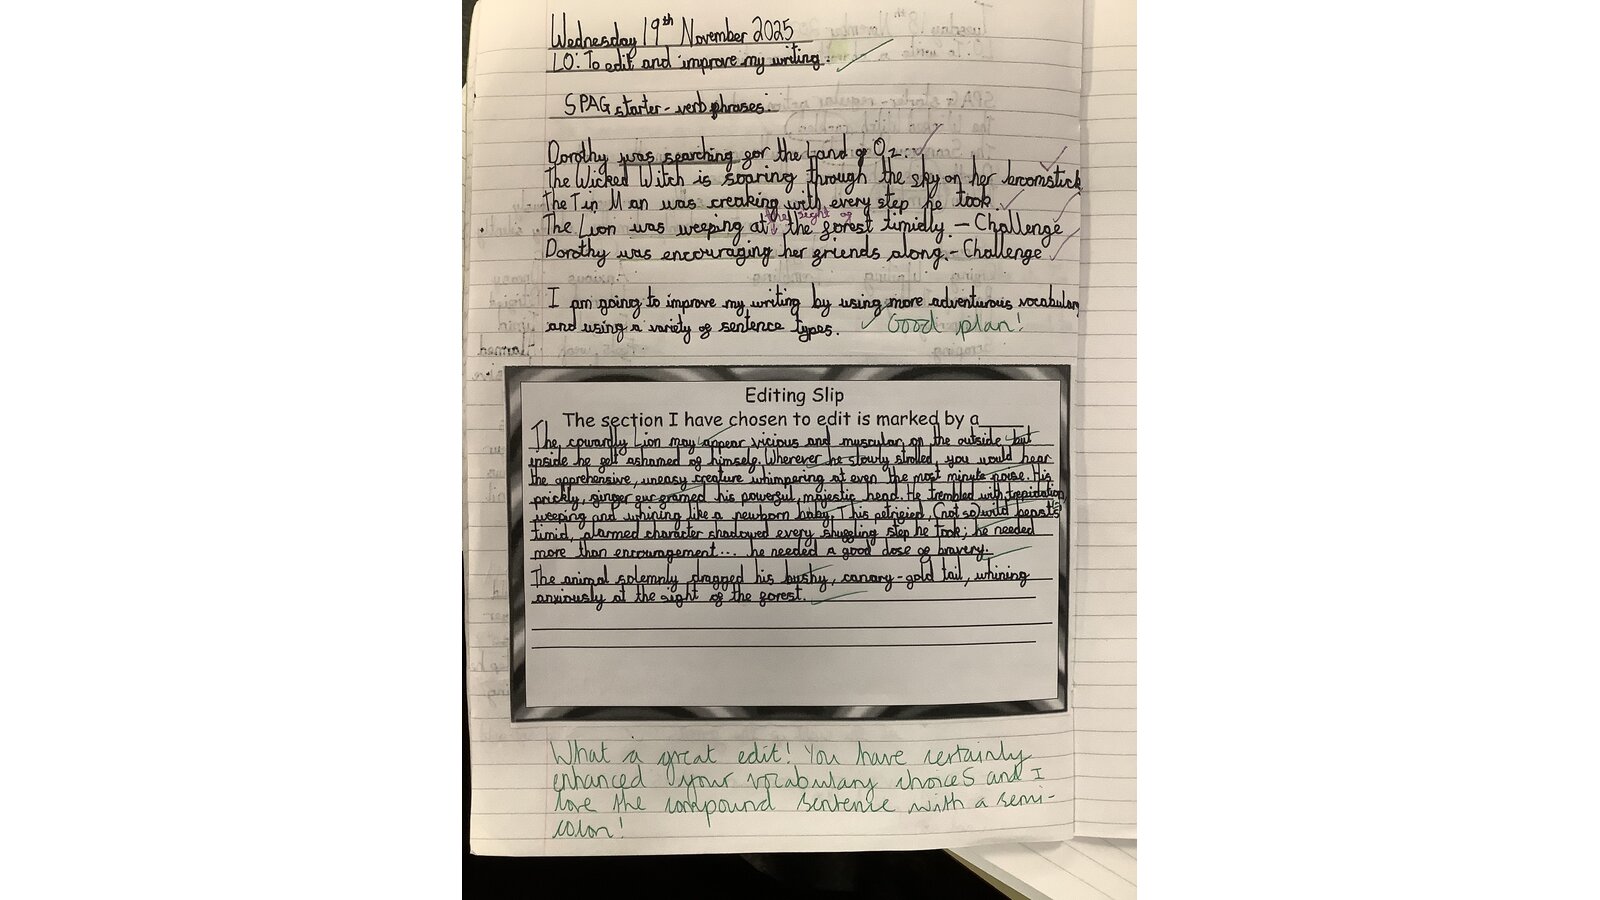 Wednesday 19th November 2025
LO: To edit and improve my writing.
SPAG starter - verb phrases.
Dorothy was searching for the Land of Oz.
The Wicked Witch is soaring through the sky on her broomstick
The Tin Man was creaking with every step he took.
the sight of
The Lion was weeping at the forest timidly. - Challenge
Dorothy was encouraging her friends along. - Challenge
I am going to improve my writing by using more adventurous vocabulary
and using a variety of sentence types. Good plan!
Editing Slip
The section I have chosen to edit is marked by a
The cowardly Lion may appear vicious and muscular on the outside but
inside he felt ashamed of himself. Wherever he slowly strolled, you would hear
the apprehensive, uneasy creature whimpering at even the most minute noise. His
prickly, ginger fur framed his powerful, majestic head. He trembled with trepidation,
weeping and whining like a newborn baby. This petrified, (not so) wild beast's
timid, alarmed character shadowed every shuffling step he took; he needed
more than encouragement... he needed a good dose of bravery.
The animal solemnly dragged his bushy, canary-gold tail, whining
anxiously at the sight of the forest.
What a great edit! You have certainly
enhanced your vocabulary choices and I
love the compound sentence with a semi-
colon!